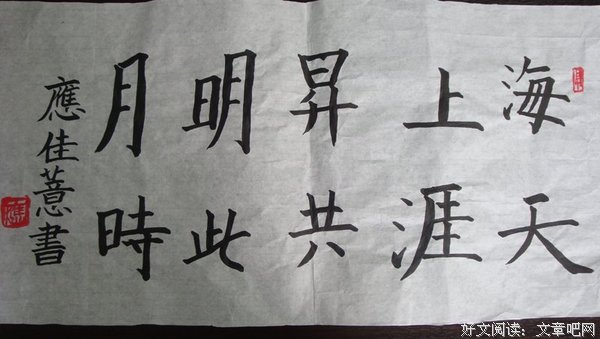 海天
上涯
昇共
明此
月時
應佳薏書
好文阅读：文章吧网